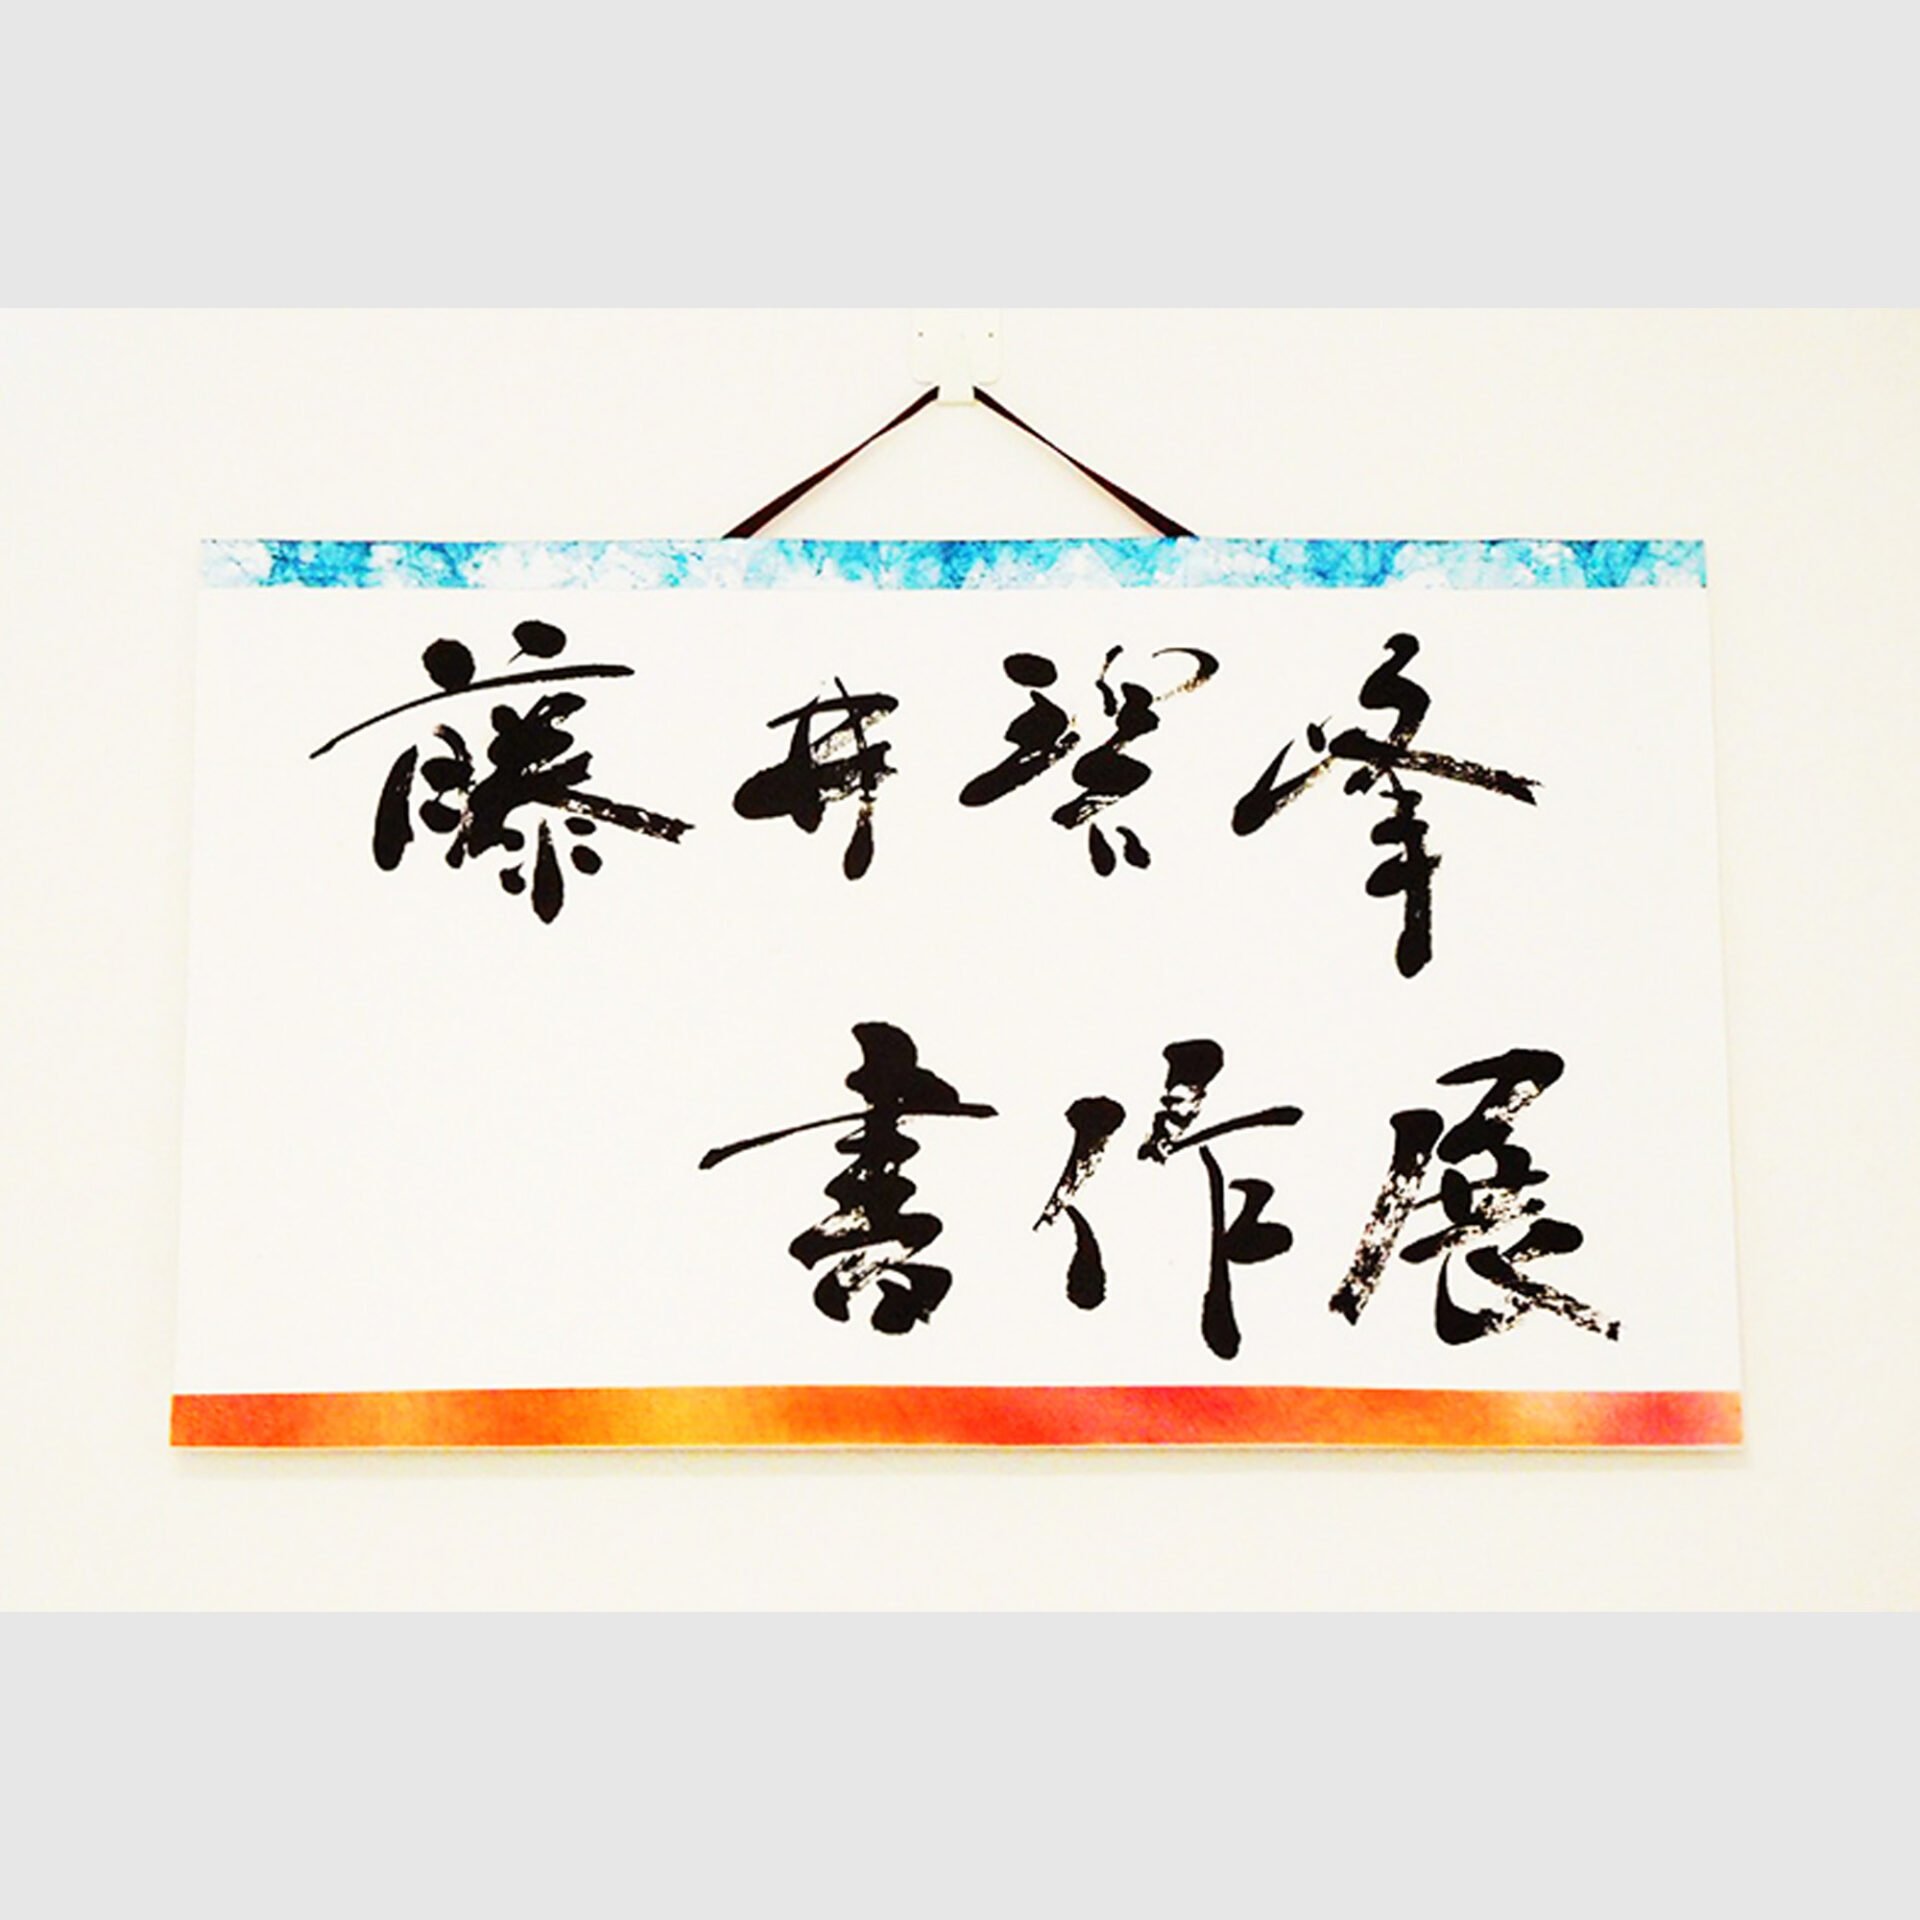 藤井碧峰
書作展